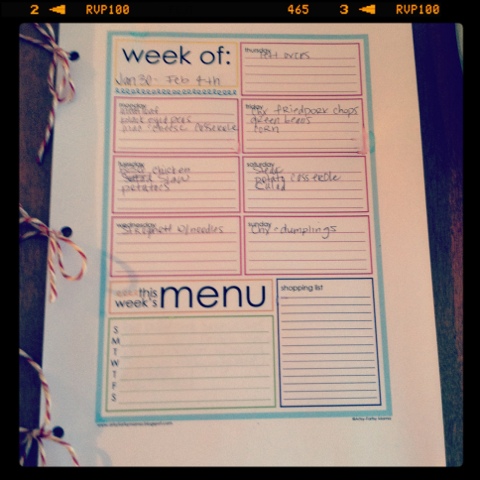 2 RVP100 465 3 RVP100
week of:
Jan 30 - Feb 4th
thursday
left overs
monday
black eyed peas
mac cheese casserole
friday
Chx fried pork chops
green beans
corn
tuesday
chicken
potatoes
saturday
potato casserole
salad
wednesday
w/noodles
sunday
Chx + dumplings
this
week's menu
shopping list
S
M
T
W
T
F
S